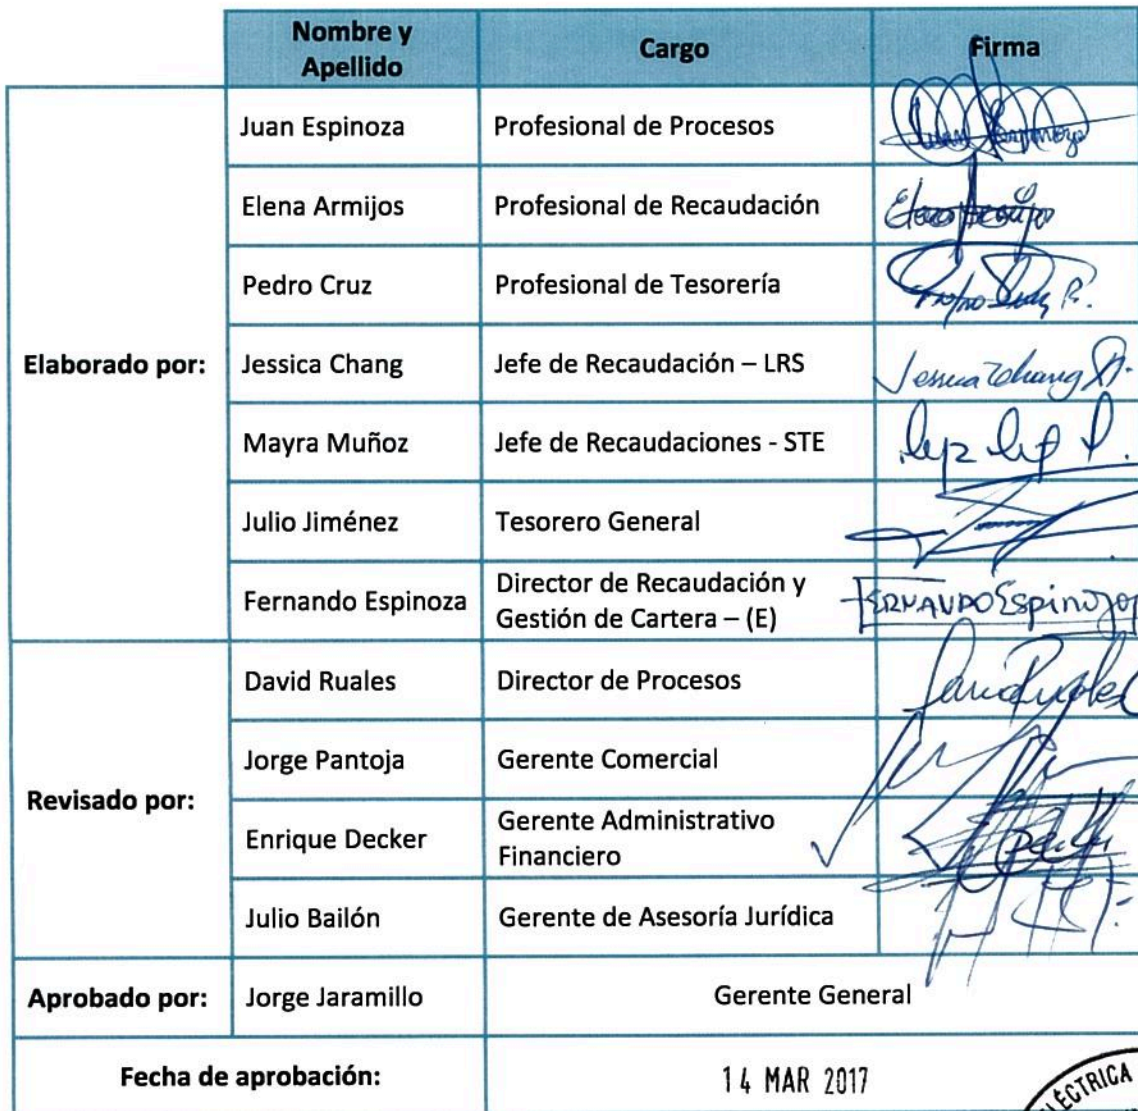 Nombre y
Apellido
Cargo
Firma
Elaborado por:
Juan Espinoza
Profesional de Procesos
Juan Espinoza
Elena Armijos
Profesional de Recaudación
Elena Armijos
Pedro Cruz
Profesional de Tesorería
Jessica Chang
Jefe de Recaudación – LRS
Jessica Chang
Mayra Muñoz
Jefe de Recaudaciones - STE
Julio Jiménez
Tesorero General
Fernando Espinoza
Director de Recaudación y
Gestión de Cartera – (E)
FERNANDO Espinoza
Revisado por:
David Ruales
Director de Procesos
David Ruales
Jorge Pantoja
Gerente Comercial
Enrique Decker
Gerente Administrativo
Financiero
Julio Bailón
Gerente de Asesoría Jurídica
Aprobado por:
Jorge Jaramillo
Gerente General
Fecha de aprobación:
14 MAR 2017
ELÉCTRICA